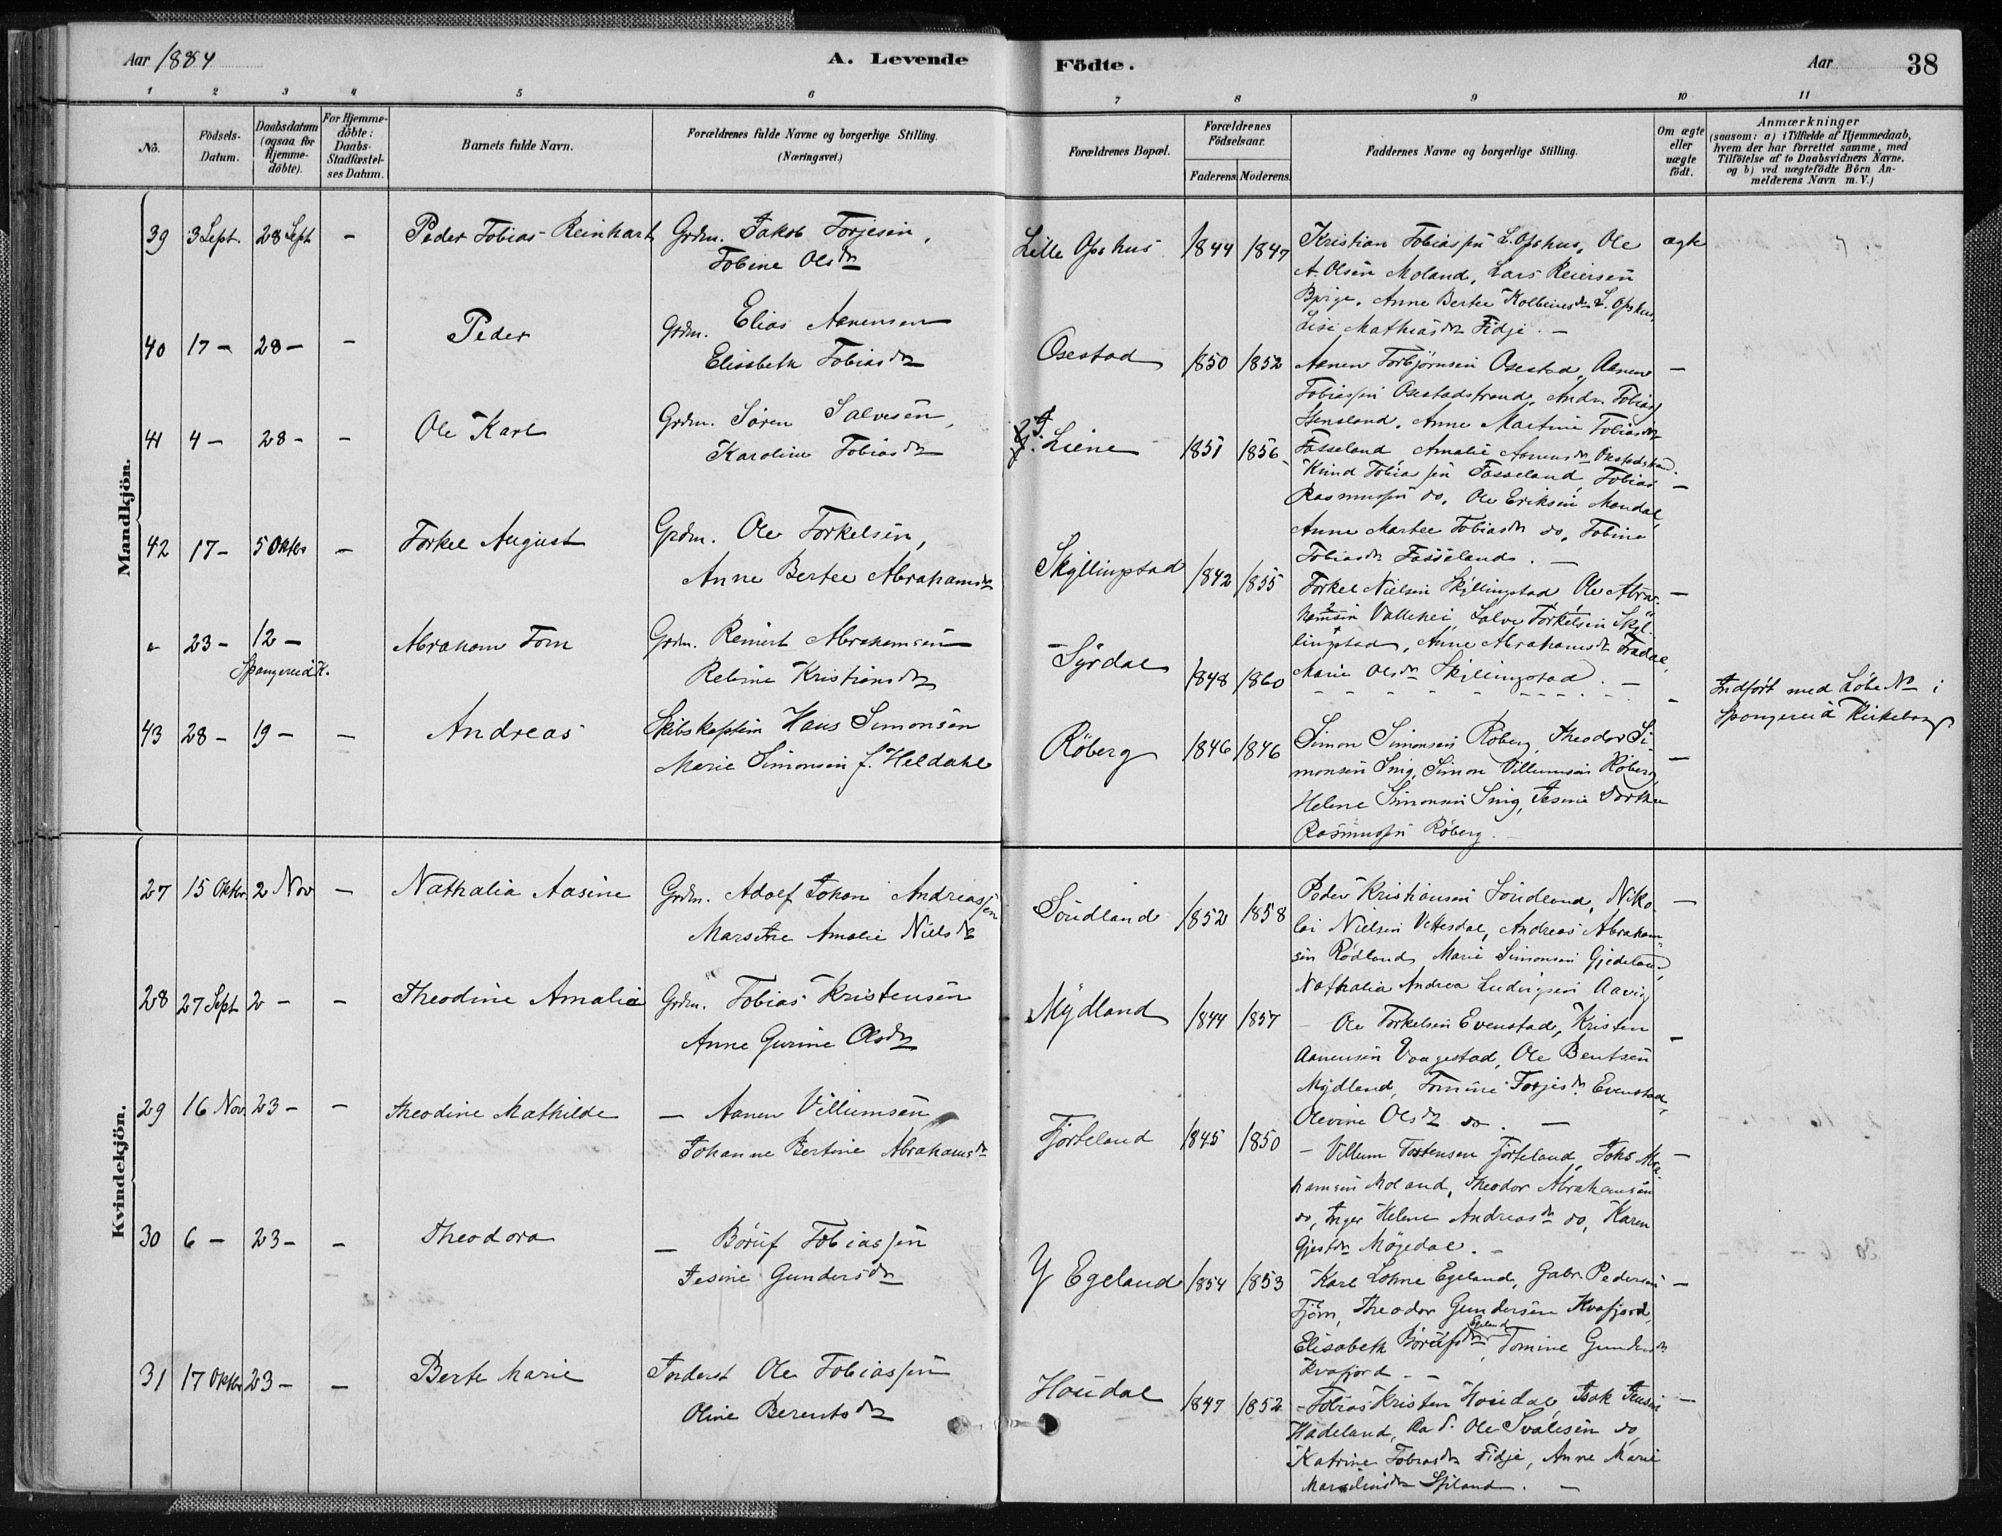 Aar 1884
A. Levende
Födte.
Aar
38
1 2 3 4 5 6 7 8 9 10 11
No.
Födsels-Datum.
Daabsdatum (ogsaa for Hjemme-döbte).
For Hjemme-döbte: Daabs-Stadfæstel-ses Datum.
Barnets fulde Navn.
Forældrenes fulde Navne og borgerlige Stilling. (Næringsvei.)
Forældrenes Bopæl.
Forældrenes Födselsaar.
Faderens. Moderens.
Faddernes Navne og borgerlige Stilling.
Om ægte eller uægte födt.
Anmærkninger
(saasom: a) i Tilfælde af Hjemmedaab, hvem der har forrettet samme, med Tilföielse af to Daabsvidners Navne. og b) ved uægtefödte Börn An-melderens Navn m. V.)
Mandkjön.
39 3 Sept. 28 Sept - Peder Tobias Reinhart Grdm. Jakob Torjesen,
Tobine Olsdr
Lille Opshus 1844 1847 Kristian Tobiassen L. Opshus, Ole
A. Olsen Moland, Lars Reiersen
Anne Bertee Kolbeinsdr L. Opshus,
Lise Mathiasdr Fidje. -
ægte
40 17 - 28 - - Peder Grdm. Elias Aanensen
Elisabeth Tobiasdr
Osestad 1850 1852 Aanen Torbjörnsen Osestad, Aanen -
Tobiassen Osestadstrand, Andr. Tobiass
Anne Martine Tobiasdr
Fasseland, Amalie Aanensdr
41 4 - 28 - - Ole Karl Grdm. Sören Salvesen,
Karoline Tobiasdr
Liene 1851 1856 Knud Tobiassen Fasseland, Tobias -
Rasmussen do, Ole Eriksen Mandal,
Anne Martee Tobiasdr do, Tobine
Tobiasdr Fasseland. -
42 17 - 5 Oktbr - Torkel August Grdm. Ole Torkelsen,
Anne Bertee Abrahamsdr
Skyllingstad 1842 1855 Torkel Nielsen Skyllingstad Ole Abra- -
hamsen Vallehei, Salve Torkelsen Skyl-
lingstad, Anne Abrahamsdr
Marie Olsdr Skyllingstad. -
23 - 12 - Abraham Tom Grdm. Reinert Abrahamsen
Spangereid K.
Rebine Kristiansdr
Syrdal 1848 1860 - - - - - - -
Indført med Löbe No i
Spangereid Kirkebog
43 28 - 19 - - Andreas Skibskaptein Hans Simonsen
Marie Simonsen f. Heldahl
Röberg 1846 1846 Simon Simonsen Röberg, Theodor Si- -
monsen Snig, Simon Villumsen Röberg,
Helene Simonsen Snig, Tesine Dorthea
Rasmussen Röberg. -
Kvindekjön.
27 15 Oktbr. 2 Nov - Nathalia Aasine Grdm. Adolf Johan Andreassen
Marsthe Amalie Nielsdr
Söndland 1852 1858 Peder Kristiansen Söndland, Niko- -
lai Nielsen Vettesdal, Andreas Abraham-
sen Rödland, Marie Simonsen Gjedeland,
Nathalia Andrea Ludvigsen Aavig
28 27 Sept 2 - - Theodine Amalia Grdm. Tobias Kristensen
Anne Gurine Olsdr
Mydland 1844 1857 - Ole Torkelsen Evenstad, Kristen -
Aanensen Vaagestad, Ole Bentsen
Mydland, Tomine Torjesdr. Evenstad,
Olevine Olsdr do. -
29 16 Nov. 23 - - Theodine Mathilde - Aanen Villumsen
Johanne Bertine Abrahamsdr
Fjörteland 1845 1850 - Villum Tostensen Fjörteland, Johs Abra- -
hamsen Moland, Theodor Abrahamsen
do, Inger Helene Andreasdr do, Karen
Gjestdr Mögedal. -
30 6 - 23 - - Theodora - Böruf Tobiassen
Tesine Gundersdr
Y Egeland 1854 1853 Karl Lohne Egeland, Gabr. Pedersen -
Tjörn, Theodor Gundersen Kvafjord,
Elisabeth Börufsdr Egeland, Tomine Gundersdr
Kvafjord. -
31 17 Oktbr 23 - - Berte Marie Inderst Ole Tobiassen
Oline Berentsdr
Houdal 1847 1852 - Tobias Kristen Houdal, Isak Jensen -
Hadeland, Ole Salvesen do,
Katrine Tobiasdr Fidje, Anne Marie